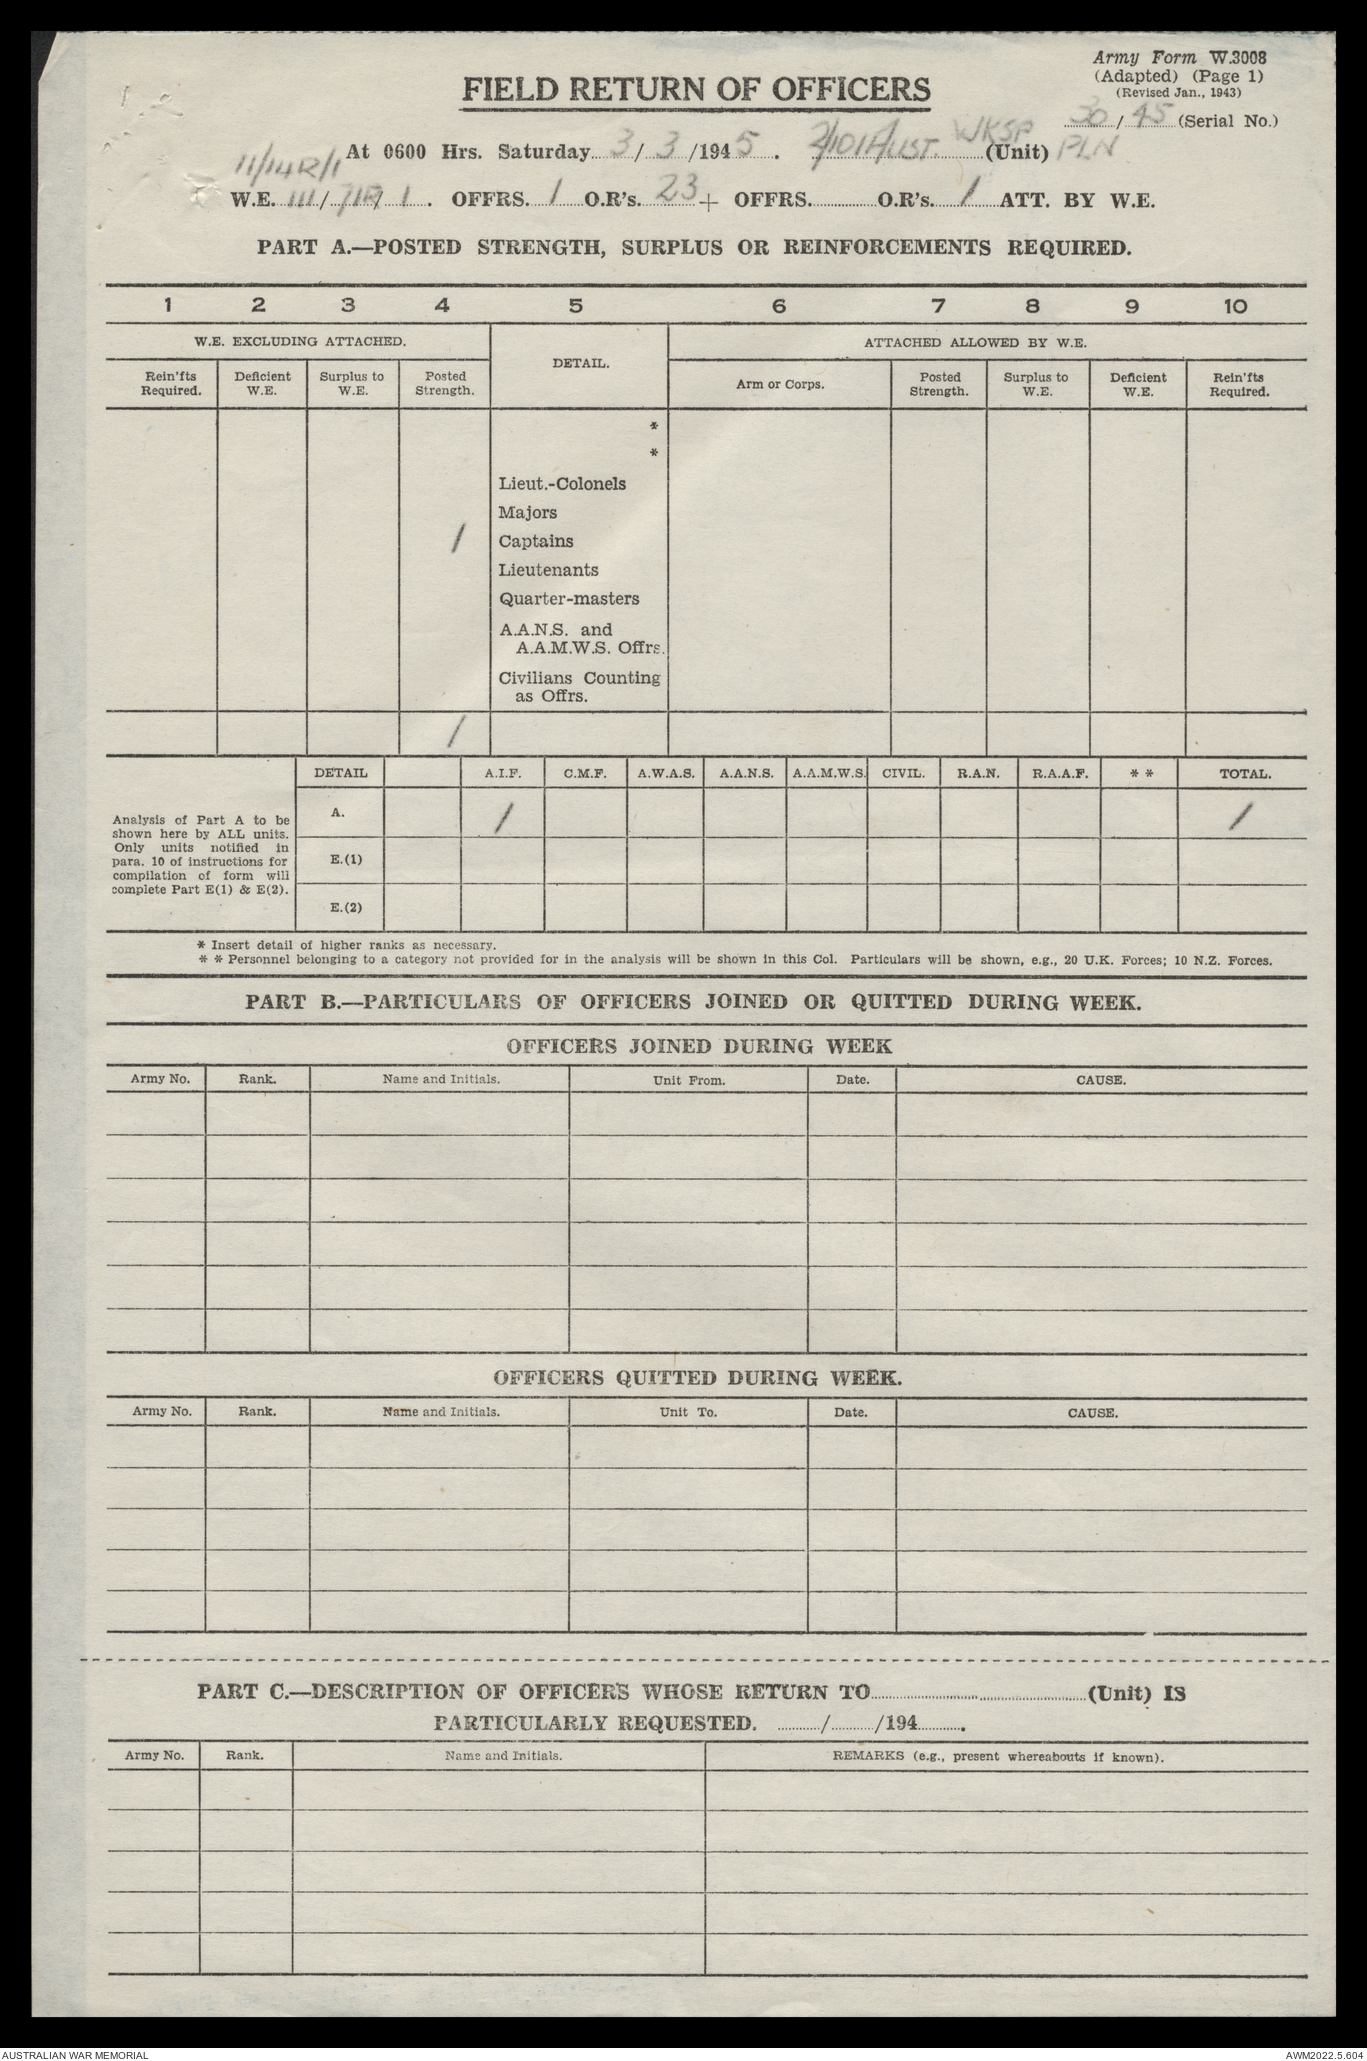 Army Form W.3008
(Adapted) (Page 1)
(Revised Jan., 1943)
FIELD RETURN OF OFFICERS
30/45 (Serial No.)
At 0600 Hrs. Saturday 3/3/1945. 2/101 AUST. WKSP (Unit) PLN
11/14R/1
W.E. III/71R/1. OFFRS. 1 O.R's. 23 + OFFRS. O.R's. 1 ATT. BY W.E.
PART A.—POSTED STRENGTH, SURPLUS OR REINFORCEMENTS REQUIRED.
1 2 3 4 5 6 7 8 9 10
W.E. EXCLUDING ATTACHED. DETAIL. ATTACHED ALLOWED BY W.E.
Rein'fts Required. Deficient W.E. Surplus to W.E. Posted Strength. Arm or Corps. Posted Strength. Surplus to W.E. Deficient W.E. Rein'fts Required.
*
*
Lieut.-Colonels
Majors
1 Captains
Lieutenants
Quarter-masters
A.A.N.S. and
A.A.M.W.S. Offrs.
Civilians Counting
as Offrs.
1
DETAIL A.I.F. C.M.F. A.W.A.S. A.A.N.S. A.A.M.W.S. CIVIL. R.A.N. R.A.A.F. * * TOTAL.
A. 1 1
Analysis of Part A to be
shown here by ALL units.
Only units notified in
para. 10 of instructions for
compilation of form will
complete Part E(1) & E(2).
E.(1)
E.(2)
* Insert detail of higher ranks as necessary.
* * Personnel belonging to a category not provided for in the analysis will be shown in this Col. Particulars will be shown, e.g., 20 U.K. Forces; 10 N.Z. Forces.
PART B.—PARTICULARS OF OFFICERS JOINED OR QUITTED DURING WEEK.
OFFICERS JOINED DURING WEEK
Army No. Rank. Name and Initials. Unit From. Date. CAUSE.
OFFICERS QUITTED DURING WEEK.
Army No. Rank. Name and Initials. Unit To. Date. CAUSE.
PART C.—DESCRIPTION OF OFFICERS WHOSE RETURN TO (Unit) IS
PARTICULARLY REQUESTED. / /194 .
Army No. Rank. Name and Initials. REMARKS (e.g., present whereabouts if known).
AUSTRALIAN WAR MEMORIAL AWM2022.5.604